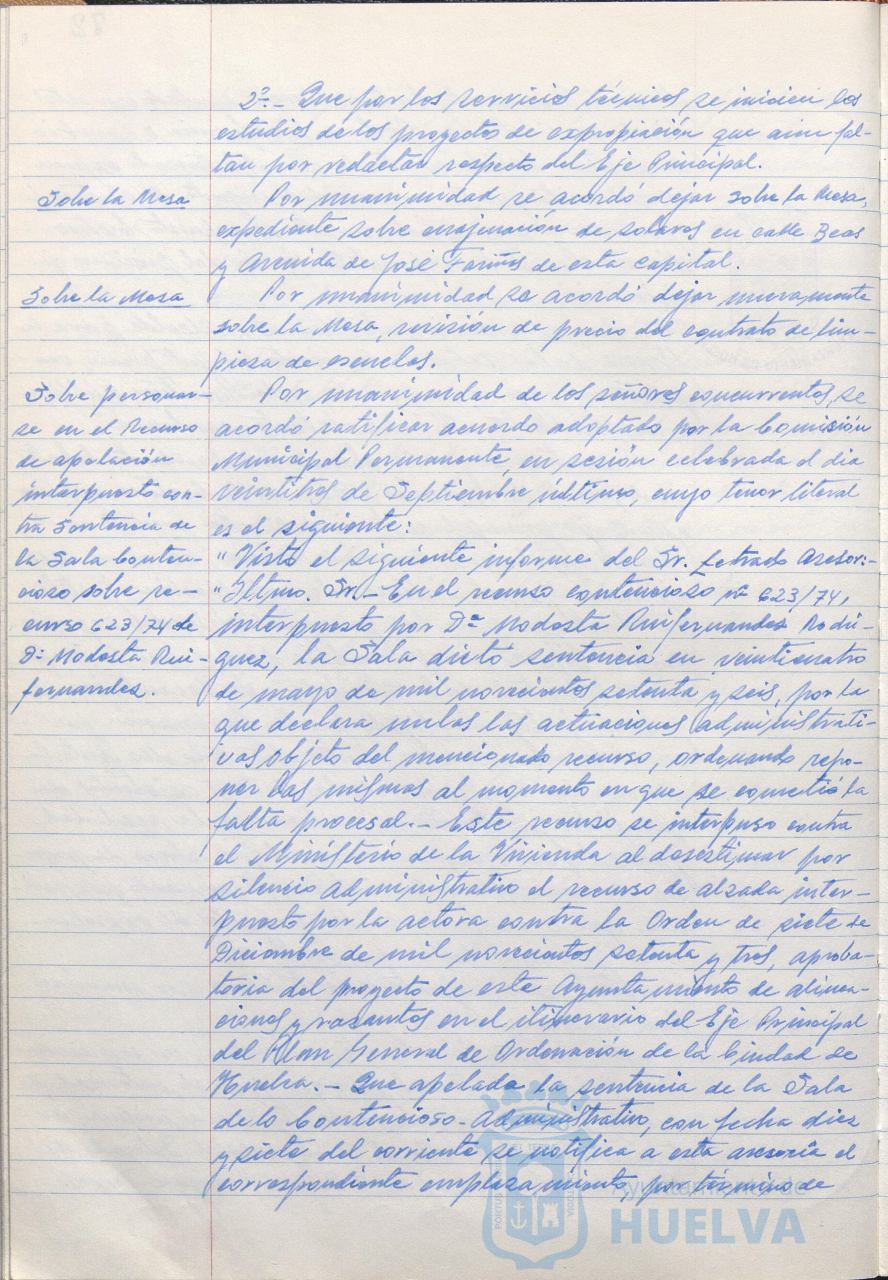 2º.- Que por los servicios técnicos se inicien los
estudios de los proyectos de expropiación que aún fal-
tan por redactar respecto del Eje Principal.
Sobre la Mesa
Por unanimidad se acordó dejar sobre la Mesa,
expediente sobre enajenación de solares en calle Beas
y Avenida de José Fariñas de esta capital.
Sobre la Mesa
Por unanimidad se acordó dejar nuevamente
sobre la Mesa, revisión de precio del contrato de lim-
pieza de escuelas.
Sobre personar-
se en el Recurso
de apelación
interpuesto con-
tra Sentencia de
la Sala Conten-
cioso sobre re-
curso 623/74 de
Dª Modesta Rui-
fernandez.
Por unanimidad de los señores concurrentes, se
acordó ratificar acuerdo adoptado por la Comisión
Municipal Permanente, en sesión celebrada el dia
veintitres de Septiembre último, cuyo tenor literal
es el siguiente:
"Visto el siguiente informe del Sr. Letrado Asesor:-
"Iltmo. Sr.- En el recurso contencioso nº 623/74,
interpuesto por Dª Modesta Ruifernandez Rodri-
guez, la Sala dictó sentencia en veinticuatro
de mayo de mil novecientos setenta y seis, por la
que declara nulas las actuaciones administrati-
vas objeto del mencionado recurso, ordenando repo-
ner las mismas al momento en que se cometió la
falta procesal.- Este recurso se interpuso contra
el Ministerio de la Vivienda al desestimar por
silencio administrativo el recurso de alzada inter-
puesto por la actora contra la Orden de siete de
Diciembre de mil novecientos setenta y tres, aproba-
toria del proyecto de este Ayuntamiento de alinea-
ciones y rasantes en el itinerario del Eje Principal
del Plan General de Ordenación de la Ciudad de
Huelva.- Que apelada la sentencia de la Sala
de lo Contencioso-Administrativo, con fecha diez
y siete del corriente se notifica a esta asesoría el
correspondiente emplazamiento, por término de
Ayuntamiento de
HUELVA